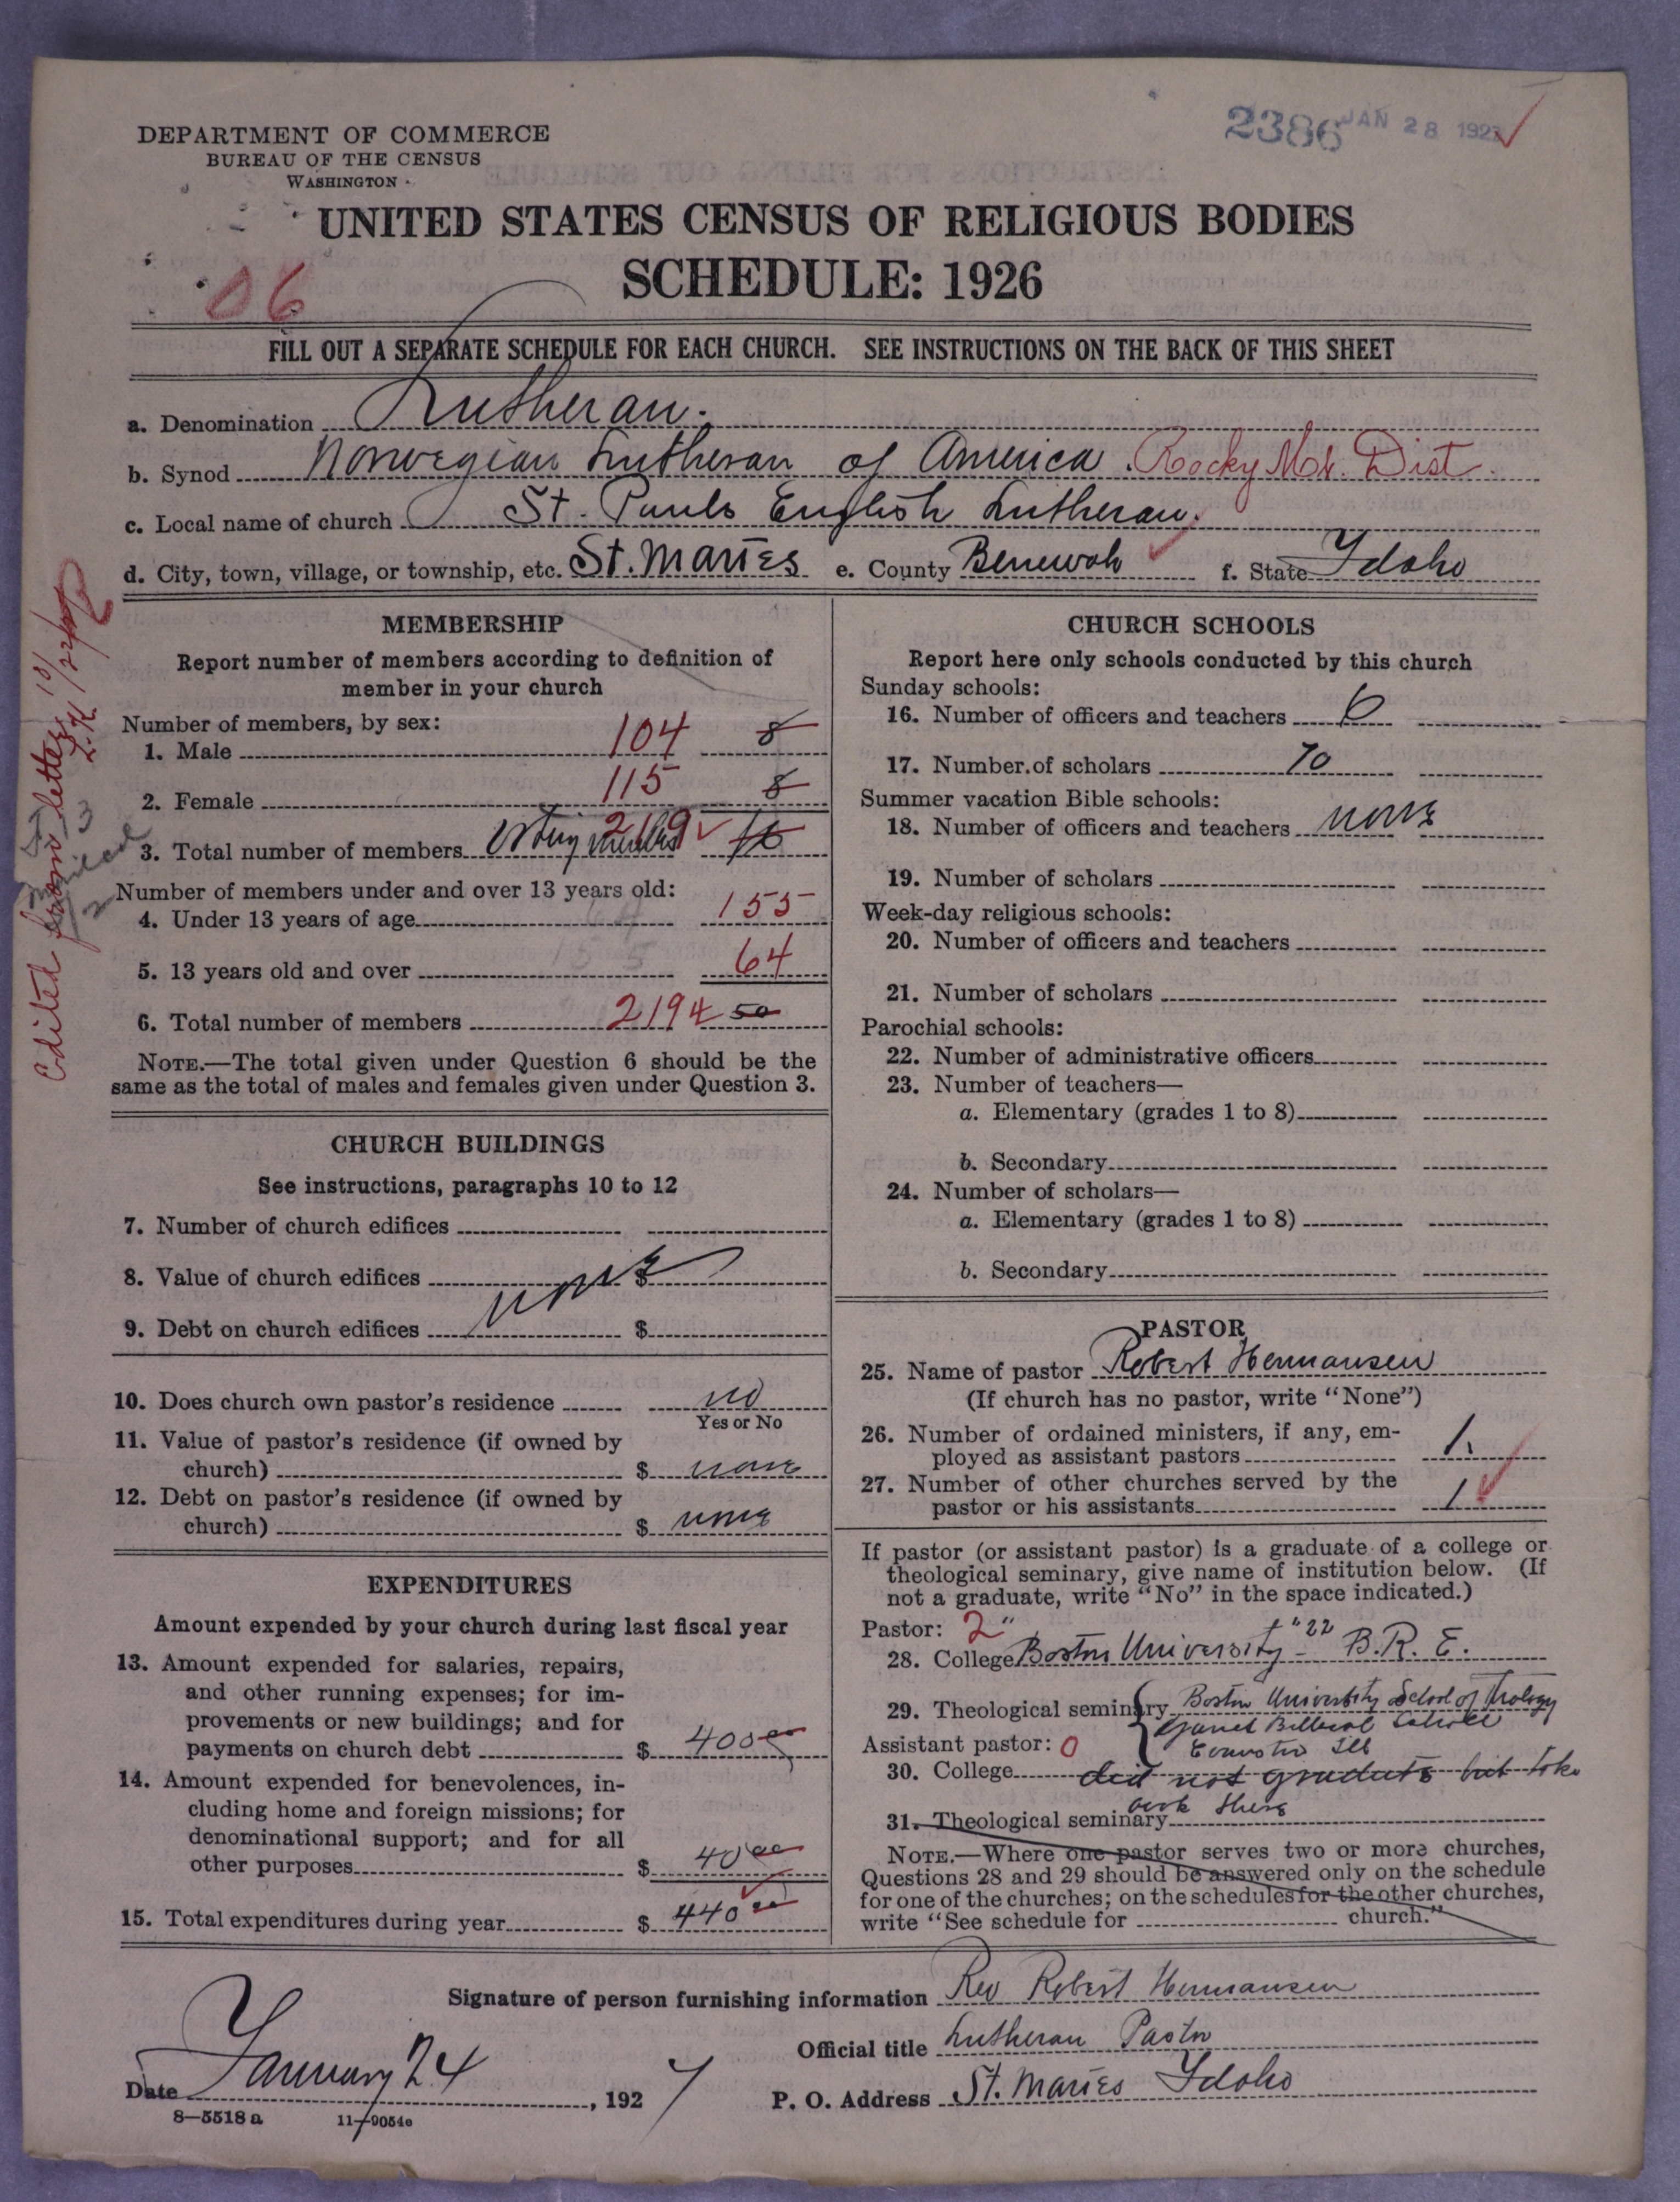 DEPARTMENT OF COMMERCE
BUREAU OF THE CENSUS
WASHINGTON
2386 JAN 28 1927
UNITED STATES CENSUS OF RELIGIOUS BODIES
SCHEDULE: 1926
06
FILL OUT A SEPARATE SCHEDULE FOR EACH CHURCH. SEE INSTRUCTIONS ON THE BACK OF THIS SHEET
a. Denomination Lutheran.
b. Synod Norwegian Lutheran of America. Rocky Mt. Dist.
c. Local name of church St. Pauls English Lutheran.
d. City, town, village, or township, etc. St. Maries e. County Benewah f. State Idaho
Edited from letter
MEMBERSHIP
Report number of members according to definition of
member in your church
Number of members, by sex:
1. Male 104 8
2. Female 115 8
3. Total number of members voting members 219 16
Number of members under and over 13 years old:
4. Under 13 years of age 155
5. 13 years old and over 64
6. Total number of members 219 4 50
NOTE.—The total given under Question 6 should be the
same as the total of males and females given under Question 3.
CHURCH BUILDINGS
See instructions, paragraphs 10 to 12
7. Number of church edifices
8. Value of church edifices $ none
9. Debt on church edifices $
10. Does church own pastor's residence no
Yes or No
11. Value of pastor's residence (if owned by
church) $ none
12. Debt on pastor's residence (if owned by
church) $ none
EXPENDITURES
Amount expended by your church during last fiscal year
13. Amount expended for salaries, repairs,
and other running expenses; for im-
provements or new buildings; and for
payments on church debt $ 400 00
14. Amount expended for benevolences, in-
cluding home and foreign missions; for
denominational support; and for all
other purposes $ 40 00
15. Total expenditures during year $ 440 00
CHURCH SCHOOLS
Report here only schools conducted by this church
Sunday schools:
16. Number of officers and teachers 6
17. Number of scholars 70
Summer vacation Bible schools:
18. Number of officers and teachers none
19. Number of scholars
Week-day religious schools:
20. Number of officers and teachers
21. Number of scholars
Parochial schools:
22. Number of administrative officers
23. Number of teachers—
a. Elementary (grades 1 to 8)
b. Secondary
24. Number of scholars—
a. Elementary (grades 1 to 8)
b. Secondary
PASTOR
25. Name of pastor Robert Hermansen
(If church has no pastor, write "None")
26. Number of ordained ministers, if any, em-
ployed as assistant pastors 1.
27. Number of other churches served by the
pastor or his assistants 1
If pastor (or assistant pastor) is a graduate of a college or
theological seminary, give name of institution below. (If
not a graduate, write "No" in the space indicated.)
Pastor: 2
28. College Boston University - "22 B.R.E.
29. Theological seminary Boston University School of Theology
Garret Biblical
Assistant pastor: 0 Evanston Ill
30. College did not graduate but toke
work there
31. Theological seminary
NOTE.—Where one pastor serves two or more churches,
Questions 28 and 29 should be answered only on the schedule
for one of the churches; on the schedules for the other churches,
write "See schedule for church."
Signature of person furnishing information Rev Robert Hermansen
Official title Lutheran Pastor
Date January 24, 1927
P. O. Address St. Maries Idaho
8—5518 a 11—9054e